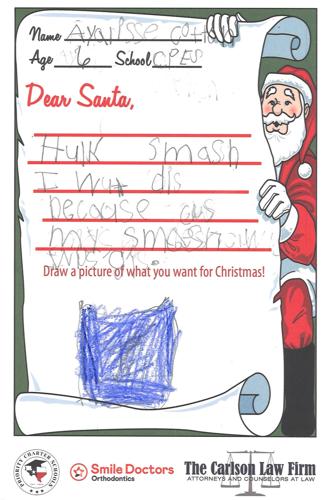 Name
Age 6 School CPES
Dear Santa,
Hulk smash
I wut dis
becaise cus
Draw a picture of what you want for Christmas!
PRIORITY CHARTER SCHOOLS
Smile Doctors
Orthodontics
The Carlson Law Firm
ATTORNEYS AND COUNSELORS AT LAW